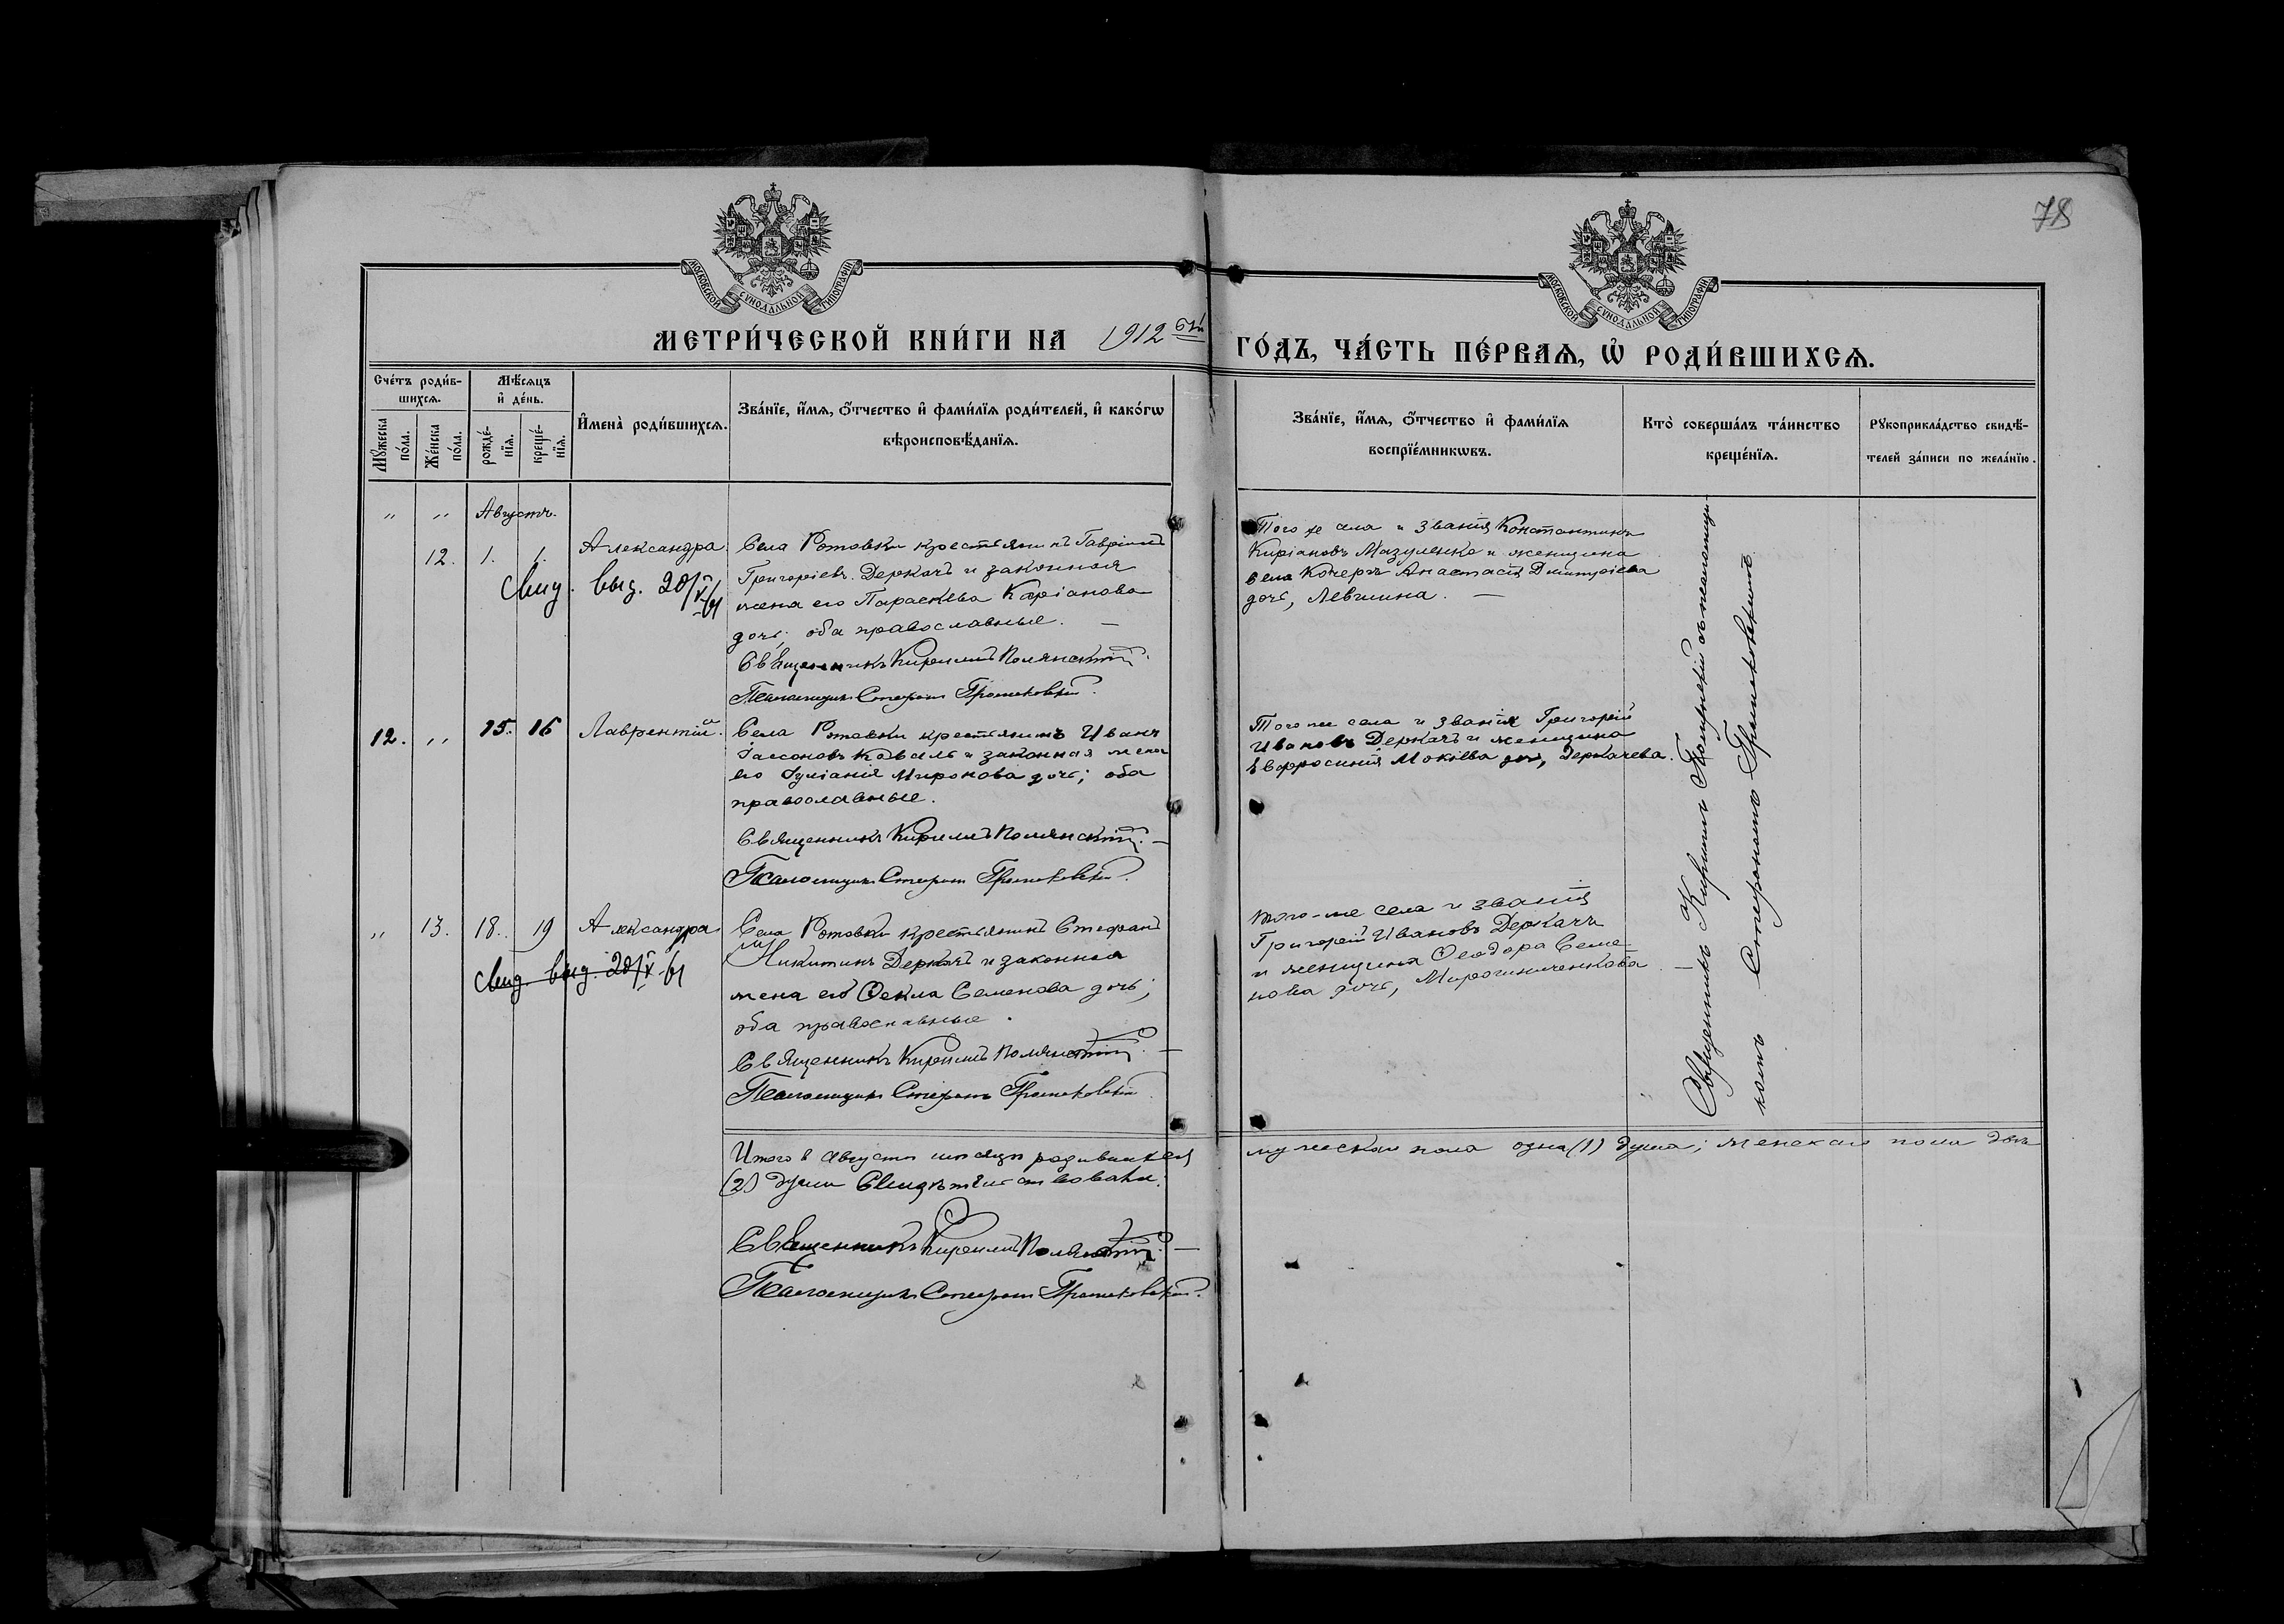 78
МОСКОВСКОЙ СѴНОДАЛЬНОЙ ТИПОГРАФІИ
МОСКОВСКОЙ СѴНОДАЛЬНОЙ ТИПОГРАФІИ
МЕТРИ́ЧЕСКОЙ КНИ́ГИ НА 1912 ый ГО́ДЪ, ЧА́СТЬ ПЕ́РВАѦ, Ѡ҆ РОДИ́ВШИХСѦ.
Сче́тъ роди́в-
шихсѧ.
Мꙋжеска по́ла.
Же́нска по́ла.
Мѣ́сѧцъ
и҆ де́нь.
рожде́-
нїѧ.
креще́-
нїѧ.
И҆мена̀ роди́вшихсѧ.
Зва́нїе, и҆́мѧ, ѻ҆́тчество и҆ фами́лїѧ роди́телей, и҆ како́гѡ
вѣроисповѣ́данїѧ.
Зва́нїе, и҆́мѧ, ѻ҆́тчество и҆ фами́лїѧ
воспрїе́мникѡвъ.
Кто̀ соверша́лъ та́инство
креще́нїѧ.
Рꙋкоприкла́дство свидѣ́-
телей за́писи по жела́нїю.
" " Августъ.
12. 1. 1. Александра
Свид. выд. 20/V 61
Села Ротовки крестьянинъ Гавріилъ
Григоріевъ Деркачъ и законная
жена его Параскева Киріанова
дочь; оба православные. —
Священникъ Кириллъ Полянскій.
Псаломщикъ Стефанъ
Того же села и званія Константинъ
Киріановъ Мазуленко и женщина
села Анастасія Димитріева
дочь, Левшина. —
12. " 15. 16 Лаврентій
Села Ротовки крестьянинъ Иванъ
Іассоновъ Коваль и законная жена
его Іуліанія Миронова дочь; оба
православные.
Священникъ Кириллъ Полянскій. —
Псаломщикъ Стефанъ
Того же села и званія Григорій
Ивановъ Деркачъ и женщина
Евфросинія Мокіева дочь, Деркачева.
" 13. 18. 19 Александра
Свид. выд. 20/V 61
Села Ротовки крестьянинъ Стефанъ
Никитинъ Деркачъ и законная
жена его Ѳекла Семенова дочь;
оба православные.
Священникъ Кириллъ Полянскій. —
Псаломщикъ Стефанъ
Того-же села и званія
Григорій Ивановъ Деркачъ
и женщина Ѳеодора Семе-
нова дочь, Мирошниченкова
Священникъ Кириллъ Полянскій съ псаломщи-
комъ Стефаномъ
Итого в августе месяце родившихся мужескаго пола одна (1) душа; женскаго пола две
(2) души Свидетельствовали:
Священникъ Кириллъ Полянскій. —
Псаломщикъ Стефанъ